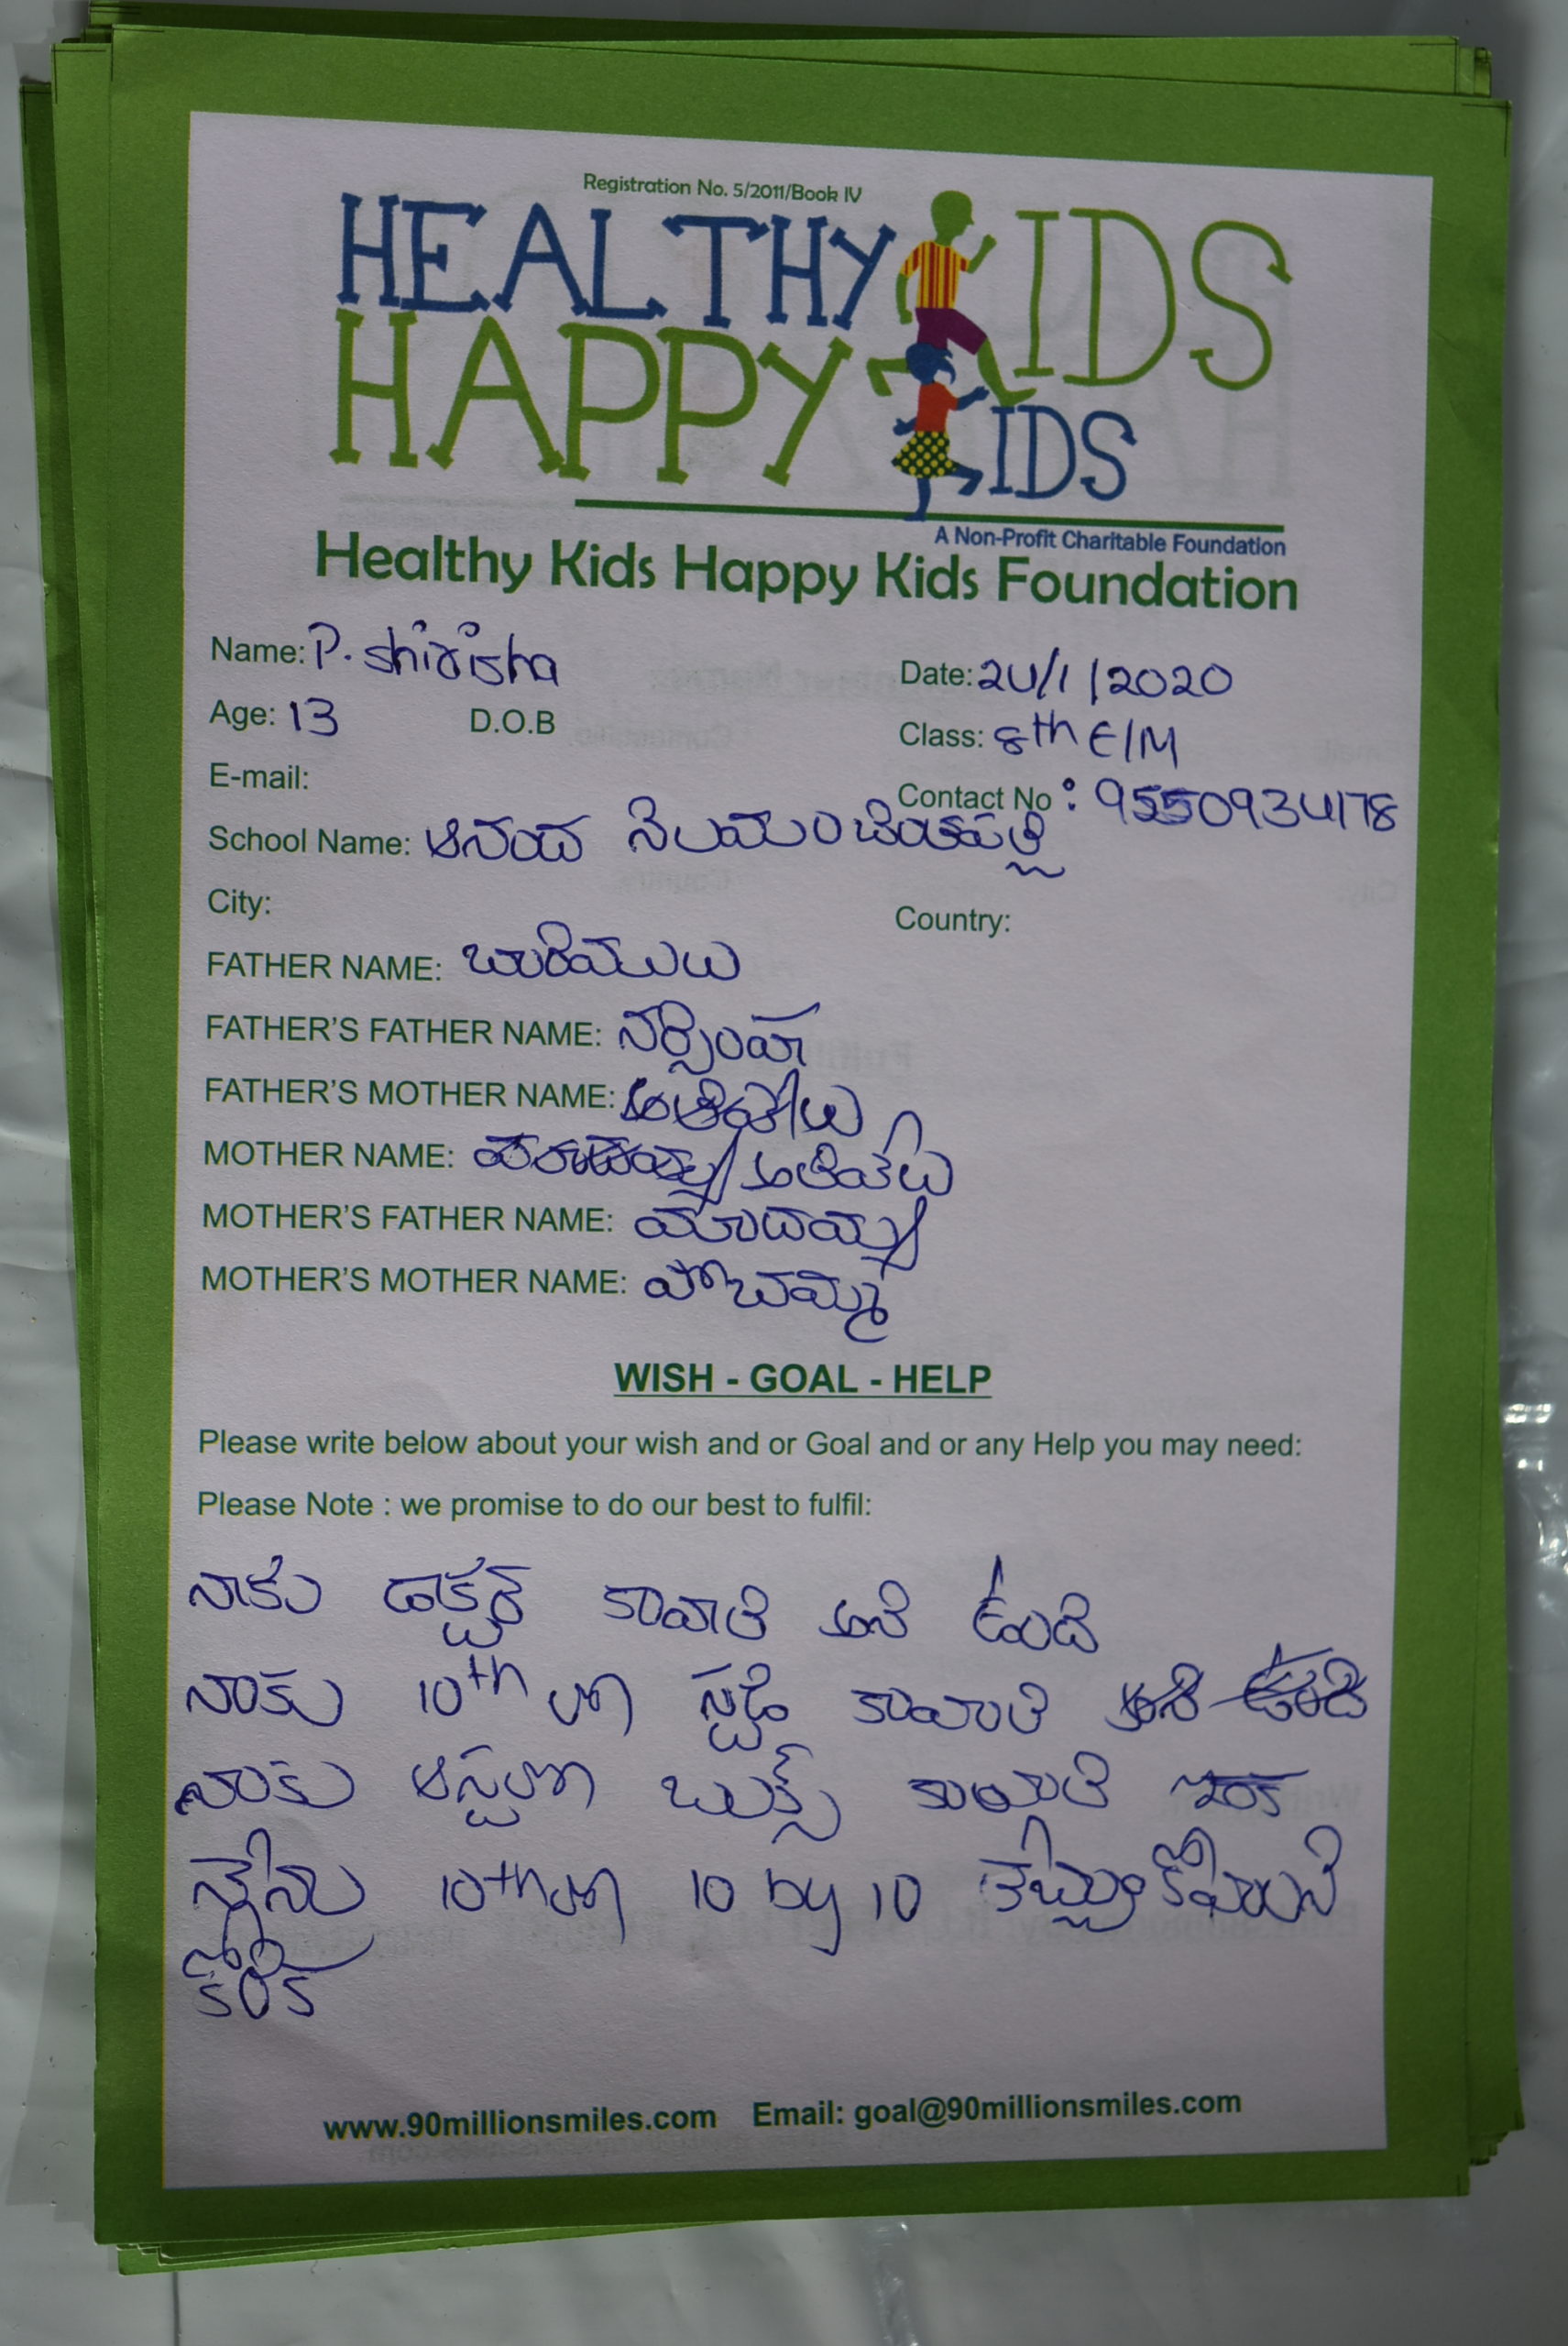 Registration No. 5/2011/Book IV
HEALTHY KIDS
HAPPY KIDS
A Non-Profit Charitable Foundation
Healthy Kids Happy Kids Foundation
Name: P. shirisha
Date: 24/1/2020
Age: 13 D.O.B
Class: 8th E/M
E-mail:
Contact No : 9550934178
School Name: ఆనంద నిలయం
City:
Country:
FATHER NAME:
FATHER'S FATHER NAME: నర్సింహ
FATHER'S MOTHER NAME:
MOTHER NAME:
MOTHER'S FATHER NAME:
MOTHER'S MOTHER NAME: పోచమ్మ
WISH - GOAL - HELP
Please write below about your wish and or Goal and or any Help you may need:
Please Note : we promise to do our best to fulfil:
నాకు డాక్టర్ కావాలి అని ఉంది
నాకు 10th లో స్టడీ కావాలి
నాకు బుక్స్ కావాలి
నేను 10th లో 10 by 10
కోరిక
www.90millionsmiles.com Email: goal@90millionsmiles.com